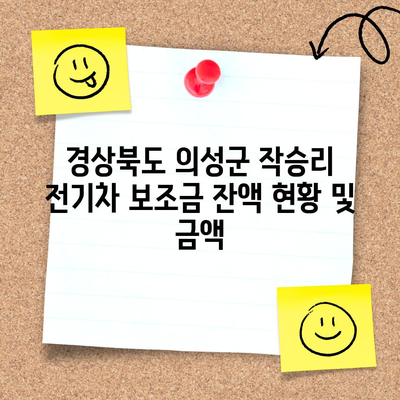 경상북도 의성군 작승리
전기차 보조금 잔액 현황 및
금액